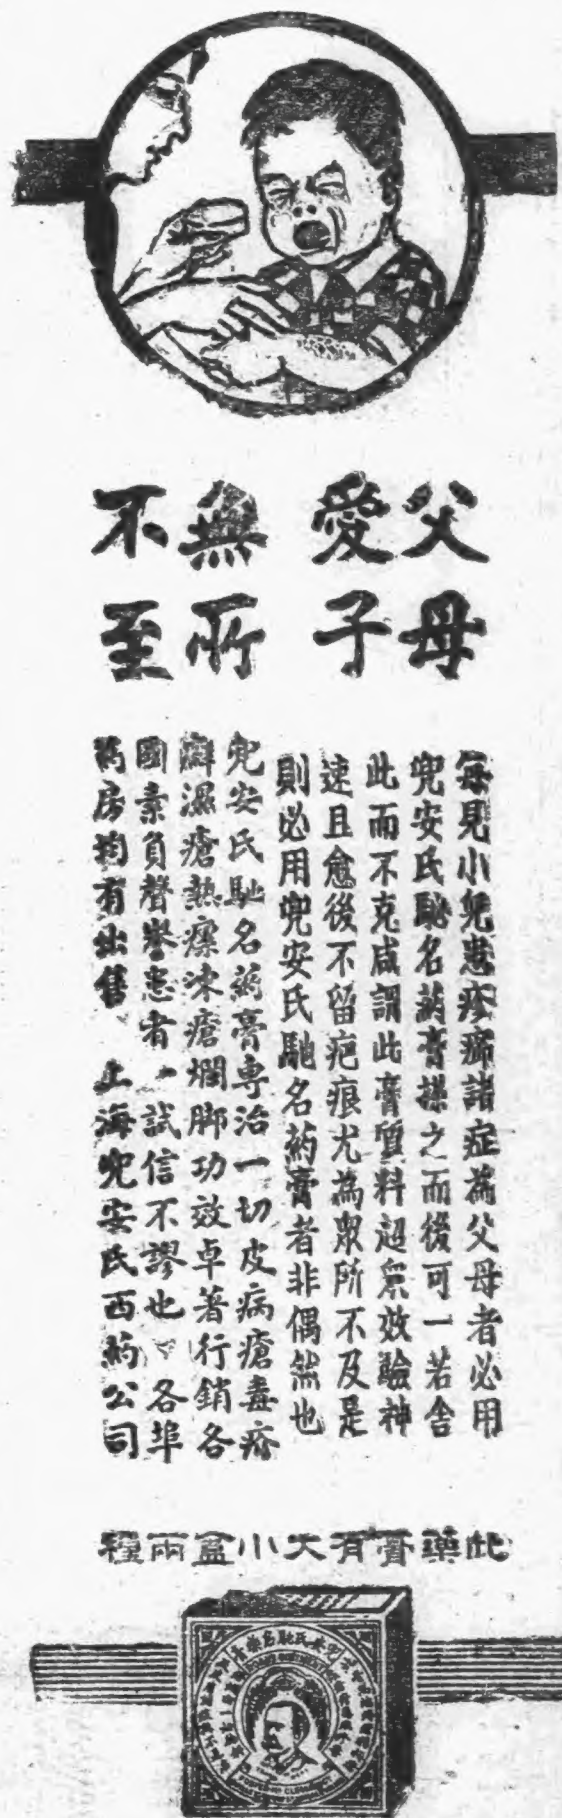 父母
愛子
無所
不至
每見小兒患疹癤諸症為父母者必用
兜安氏馳名葯膏搽之而後可一若舍
此而不克咸謂此膏質料超羣效驗神
速且愈後不留疤痕尤為衆所不及是
則必用兜安氏馳名葯膏者非偶然也
兜安氏馳名葯膏專治一切皮病瘡毒疥
癬濕瘡熱瘰凍瘡爛脚功效卓著行銷各
國素負聲譽患者一試信不謬也 各埠
葯房均有出售 上海兜安氏西葯公司
此藥膏有大小盒兩種
兜安氏馳名藥膏